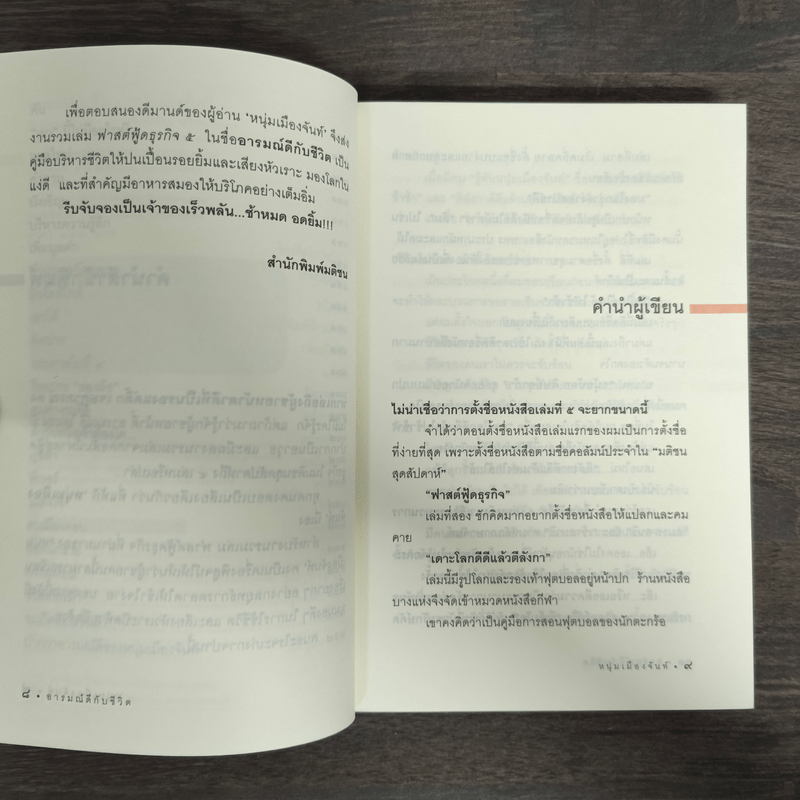 เพื่อตอบสนองดีมานด์ของผู้อ่าน ‘หนุ่มเมืองจันท์’ จึงส่ง
งานรวมเล่ม ฟาสต์ฟู้ดธุรกิจ ๕ ในชื่ออารมณ์ดีกับชีวิต เป็น
คู่มือบริหารชีวิตให้ปนเปื้อนรอยยิ้มและเสียงหัวเราะ มองโลกใน
แง่ดี และที่สำคัญมีอาหารสมองให้บริโภคอย่างเต็มอิ่ม
รีบจับจองเป็นเจ้าของเร็วพลัน...ช้าหมด อดยิ้ม!!!
สำนักพิมพ์มติชน
๘ • อารมณ์ดีกับชีวิต
คำนำผู้เขียน
ไม่น่าเชื่อว่าการตั้งชื่อหนังสือเล่มที่ ๕ จะยากขนาดนี้
จำได้ว่าตอนตั้งชื่อหนังสือเล่มแรกของผมเป็นการตั้งชื่อ
ที่ง่ายที่สุด เพราะตั้งชื่อหนังสือตามชื่อคอลัมน์ประจำใน “มติชน
สุดสัปดาห์”
“ฟาสต์ฟู้ดธุรกิจ”
เล่มที่สอง ชักคิดมากอยากตั้งชื่อหนังสือให้แปลกและคม
คาย
“เดาะโลกดีดีแล้วตีลังกา”
เล่มนี้มีรูปโลกและรองเท้าฟุตบอลอยู่หน้าปก ร้านหนังสือ
บางแห่งจึงจัดเข้าหมวดหนังสือกีฬา
เขาคงคิดว่าเป็นคู่มือการสอนฟุตบอลของนักตะกร้อ
หนุ่มเมืองจันท์ • ๙